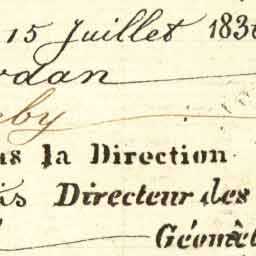 15 Juillet 183
rdan
eby
us la Direction
is Directeur des
Géomèt